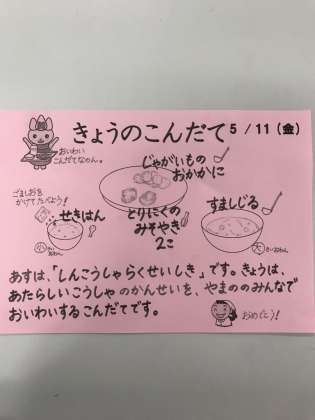 きょうのこんだて 5/11(金)
おいわい
こんだてなのん。
じゃがいもの
おかかに
ごましおを
かけてたべよう!
せきはん
とりにくの
みそやき
2こ
すましじる
小
さいおわん
大
きいおわん
あすは、「しんこうしゃらくせいしき」です。きょうは、
あたらしいこうしゃのかんせいを、やまののみんなで
おいわいするこんだてです。
おめでとう!